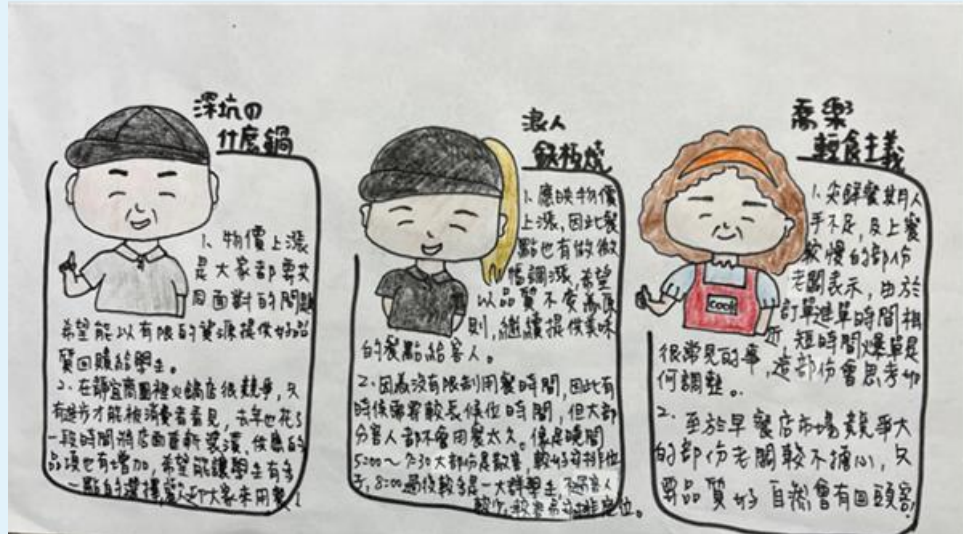 深坑の
什庅鍋
1、物價上漲
是大家都要共
同面對的問題
希望能以有限的資源提供好品
質回饋給學生。
2、在靜宜商圈裡火鍋店很競爭,只
有進步才能被消費者看見,去年也花了
一段時間將店面重新裝潢、
品項也有增加,希望能讓學生有多
一點的選擇,歡迎大家來用餐!
浪人
鉄板燒
1、應映物價
上漲,因此餐
點也有做微
幅調漲,希望
以品質不變為原
則,繼續提供美味
的餐點給客人。
2、因為沒有限制用餐時間,因此有
時候需要較長候位時間,但大部
分客人都不會用餐太久。像是晚間
5:00~7:30大部份是散客,較好安排位
子,8:00過後較多是一大群學生,
位。
喬樂
輕食主義
1、尖鋒餐期人
手不足,及上餐
較慢的部份
老闆表示,由於
訂單進單時間相
近,短時間爆單是
很常見的事,這部份會思考如
何調整。
2、至於早餐店市場競爭大
的部份老闆較不擔心,只
要品質好自然會有回頭客!
cook